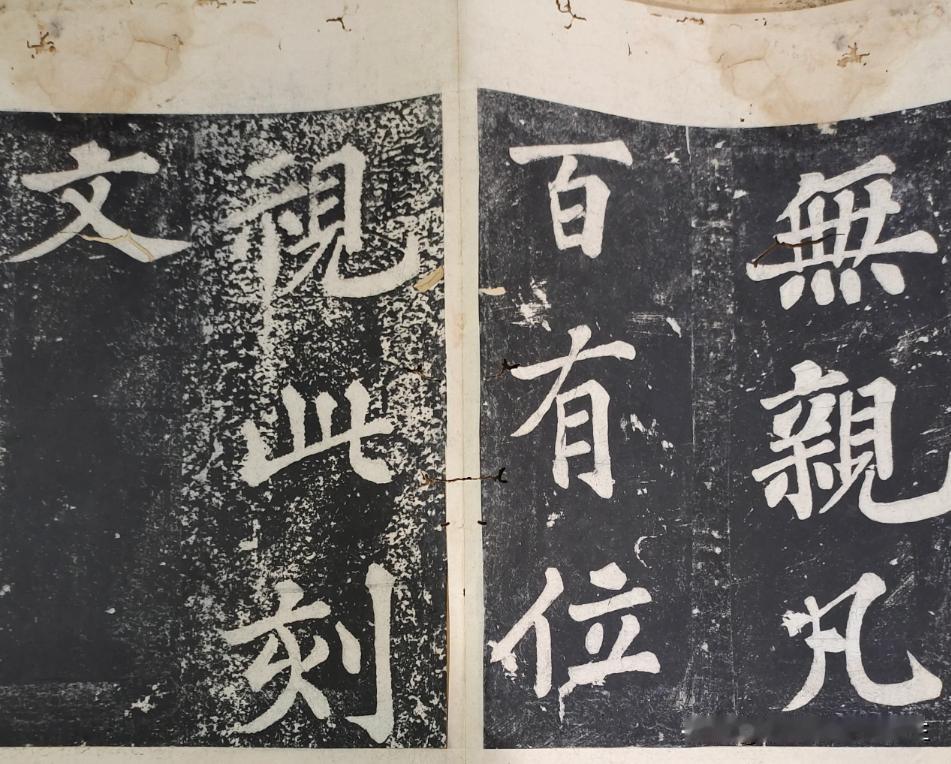 無親凡
百有位
視此刻
文